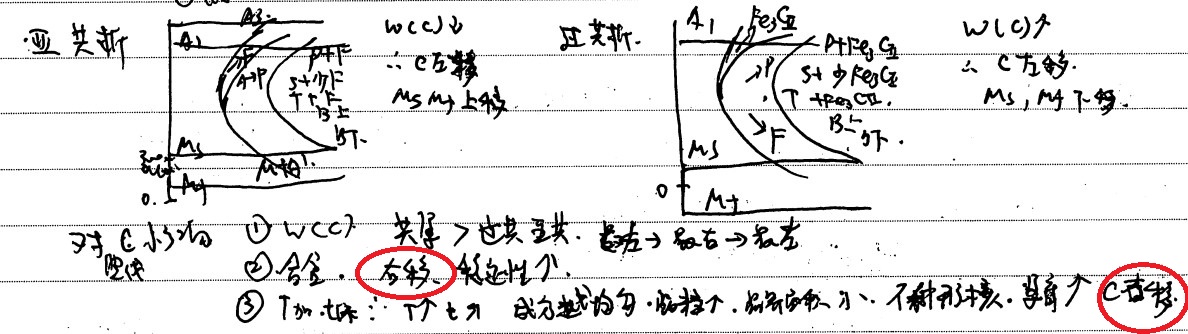 亚共析
A3
A1
F
A→P
P+F
S+少F
T+F
B上
B下
Ms
M+A'
Mf
0
W(C)↓
∴ C左移
Ms Mf 上移
过共析.
A1
Fe3CⅡ
P+Fe3CⅡ
S+少Fe3CⅡ
T+Fe3CⅡ
B上
B下.
→P
Ms
0
Mf
W(C)↑
∴ C左移.
Ms, Mf 下移.
对C 影响 ① W(C) 共 > 过共 亚共. 最左→最右→最左
② 合金. 右移. 稳定性个.
③ T加, t保: T↑ t↑ 成分越均匀. 晶粒个. 晶界面积小. 不利形核. C右移.